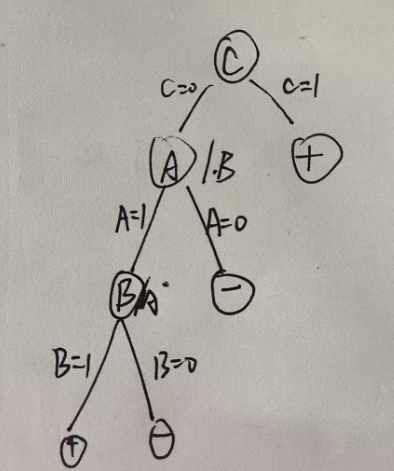 C
C=0 C=1
A /.B +
A=1 A=0
B/A -
B=1 B=0
+ -